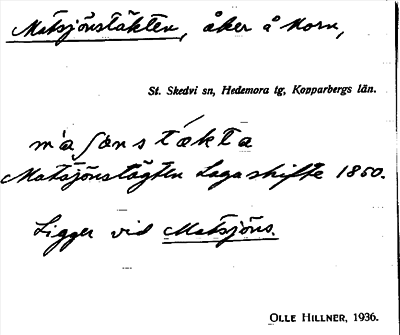 Matsjönstäkten, åker å Norn,
St. Skedvi sn, Hedemora tg, Kopparbergs län.
màʃönstäkta
Matsjönstägten Laga skifte 1860.
Ligger vid Matsjöns.
OLLE HILLNER, 1936.